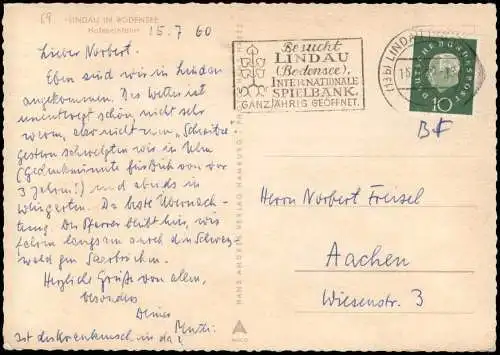 59
LINDAU IM BODENSEE
Hafeneinfahrt
15.7.60
Lieber Norbert.
Eben sind wir in Lindau
angekommen. Das Wetter ist
unentwegt schön, nicht sehr
warm, aber nicht zum
Gestern schwelgten wir in Ulm
(Gedenkminute für Dich von vor
3 Jahren!) und abends in
Weingarten. Die beste Übernach-
tung. Der Pfarrer bleibt hier, wir
fahren langsam durch den Schwarz-
wald gen Saarbrücken.
Herzliche Grüße von allen,
besonders
Deiner
Ist da?
Besucht
LINDAU
(Bodensee),
INTERNATIONALE
SPIELBANK.
GANZJÄHRIG GEÖFFNET.
(13b) LINDAU
DEUTSCHE BUNDESPOST
10
Herrn Norbert Freisel
Aachen
Wiesenstr. 3